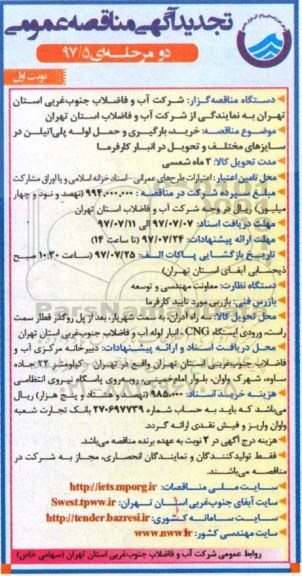 تجدیدآگهی مناقصه عمومی
دو مرحله‌ای ۹۷/۵
نوبت اول
دستگاه مناقصه‌گزار: شرکت آب و فاضلاب جنوب‌غربی استان
تهران به نمایندگی از شرکت آب و فاضلاب استان تهران
موضوع مناقصه: خرید، بارگیری و حمل لوله پلی‌اتیلن در
سایزهای مختلف و تحویل در انبار کارفرما
مدت تحویل کالا: ۲ ماه شمسی
محل تامین اعتبار: اعتبارات طرح‌های عمرانی - اسناد خزانه اسلامی و یا اوراق مشارکت
مبلغ سپرده شرکت در مناقصه: ۹۹۴,۰۰۰,۰۰۰ (نهصد و نود و چهار
میلیون) ریال در وجه شرکت آب و فاضلاب استان تهران
مهلت دریافت اسناد: ۹۷/۰۷/۰۷ الی ۹۷/۰۷/۱۱
مهلت ارائه پیشنهادات: ۹۷/۰۷/۲۴ (تا ساعت ۱۴)
تاریخ بازگشایی پاکات الف: ۹۷/۰۷/۲۵ (ساعت ۱۰:۳۰ صبح
ذیحسابی آبفای استان تهران)
دستگاه نظارت: معاونت مهندسی و توسعه
بازرس فنی: بازرس مورد تایید کارفرما
محل تحویل کالا: سه راه آدران، به سمت شهریار، بعد از پل روگذر قطار سمت
راست، ورودی ایستگاه CNG، انبار لوله آب و فاضلاب جنوب‌غربی استان تهران
محل دریافت اسناد و ارائه پیشنهادات: دبیرخانه مرکزی آب و
فاضلاب جنوب‌غربی استان تهران واقع در تهران - کیلومتر ۲۲ جاده
ساوه، شهرک واوان، بلوار امام‌خمینی، روبه‌روی پاسگاه نیروی انتظامی
هزینه خرید اسناد: ۹۸۵,۰۰۰ (نهصد و هشتاد و پنج هزار) ریال
می‌باشد که باید به حساب شماره ۲۷۰۶۹۷۷۳۹ بانک تجارت شعبه
واوان واریز و فیش نقدی ارائه گردد.
هزینه درج آگهی در ۲ نوبت به عهده برنده مناقصه می‌باشد.
فقط تولیدکنندگان و نمایندگان انحصاری، مجاز به شرکت در
مناقصه می‌باشند.
سایت ملی مناقصات: http://iets.mporg.ir
سایت آبفای جنوب‌غربی استان تهران: Swest.tpww.ir
سایت سامانه کشوری: http://tender.bazresi.ir
سایت مهندسی کشور: www.nww.ir
روابط عمومی شرکت آب و فاضلاب جنوب‌غربی استان تهران (سهامی خاص)